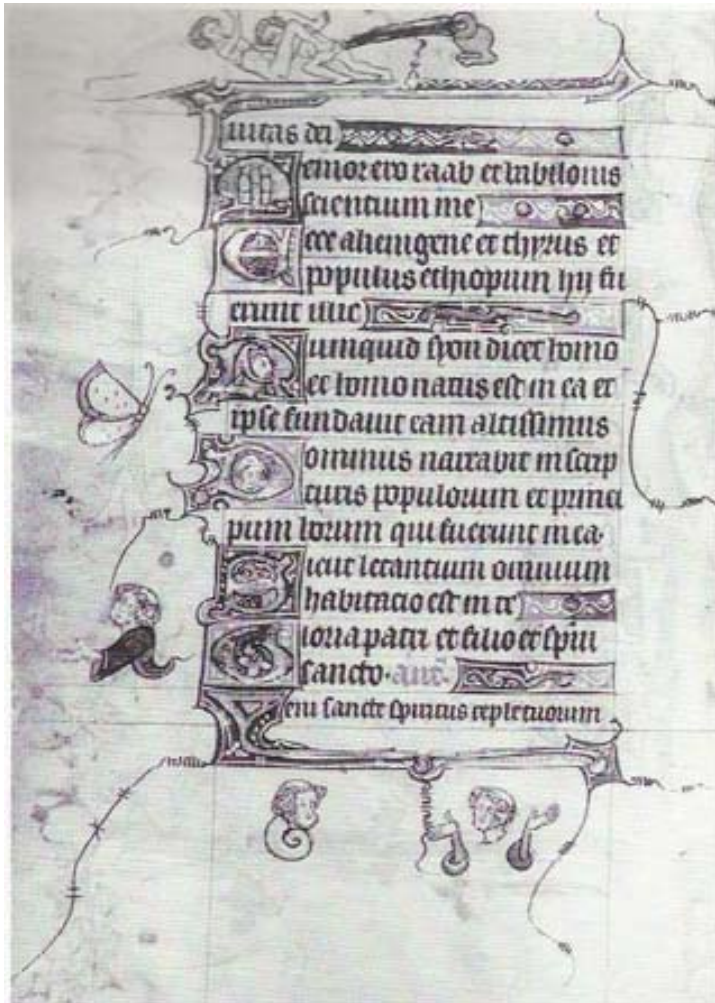 iuitas dei
emor ero raab et babilonis
scientium me
cce alienigene et thyrus et
populus ethiopum hij fu
erunt illic
umquid syon dicet homo
et homo natus est in ea et
ipse fundavit eam altissimus
ominus narrabit in scrip
turis populorum et princi
pum horum qui fuerunt in ea.
icut letantium omnium
habitacio est in te
loria patri et filio et spiri
sancto. ant.
eni sancte spiritus reple tuorum